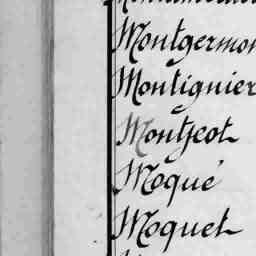 Montgermon
Montignier
Montjeot
Moqué
Moquet